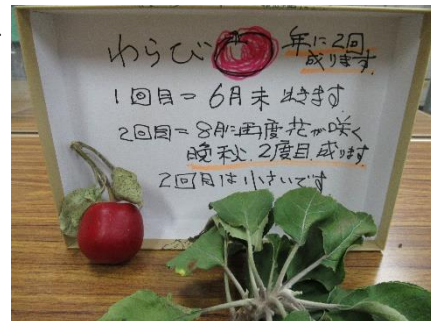 わらび
年に2回
成ります
1回目=6月末 出きます
2回目=8月に再度花が咲く
晩秋.2度目.成ります
2回目は小さいです